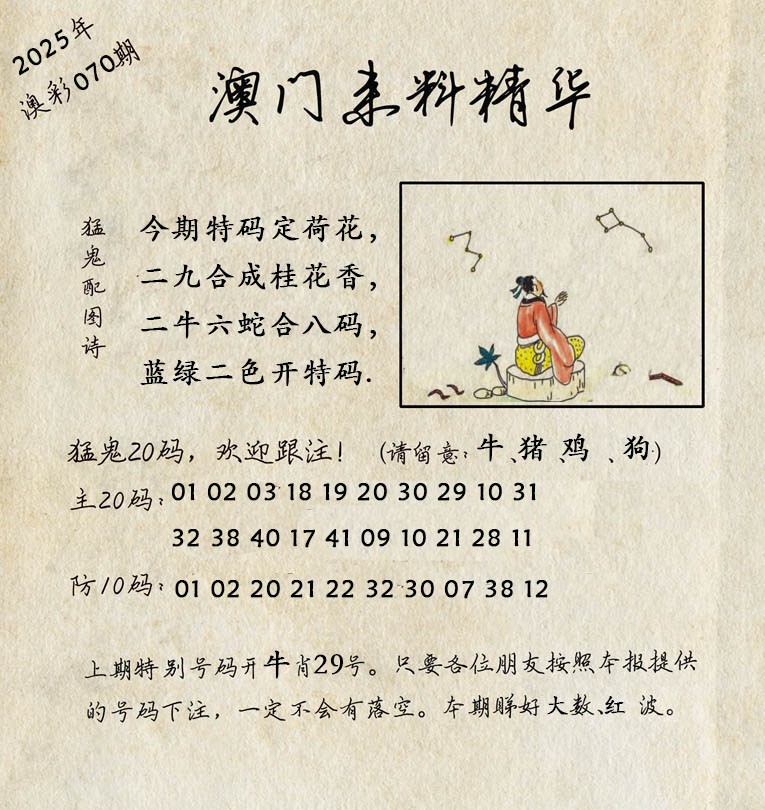 2025年
澳彩070期
澳门来料精华
猛鬼配图诗
今期特码定荷花，
二九合成桂花香，
二牛六蛇合八码，
蓝绿二色开特码.
猛鬼20码，欢迎跟注！（请留意：牛、猪、鸡、狗）
主20码：01 02 03 18 19 20 30 29 10 31
32 38 40 17 41 09 10 21 28 11
防10码：01 02 20 21 22 32 30 07 38 12
上期特别号码开牛肖29号。只要各位朋友按照本报提供
的号码下注，一定不会有落空。本期睇好大数、红波。